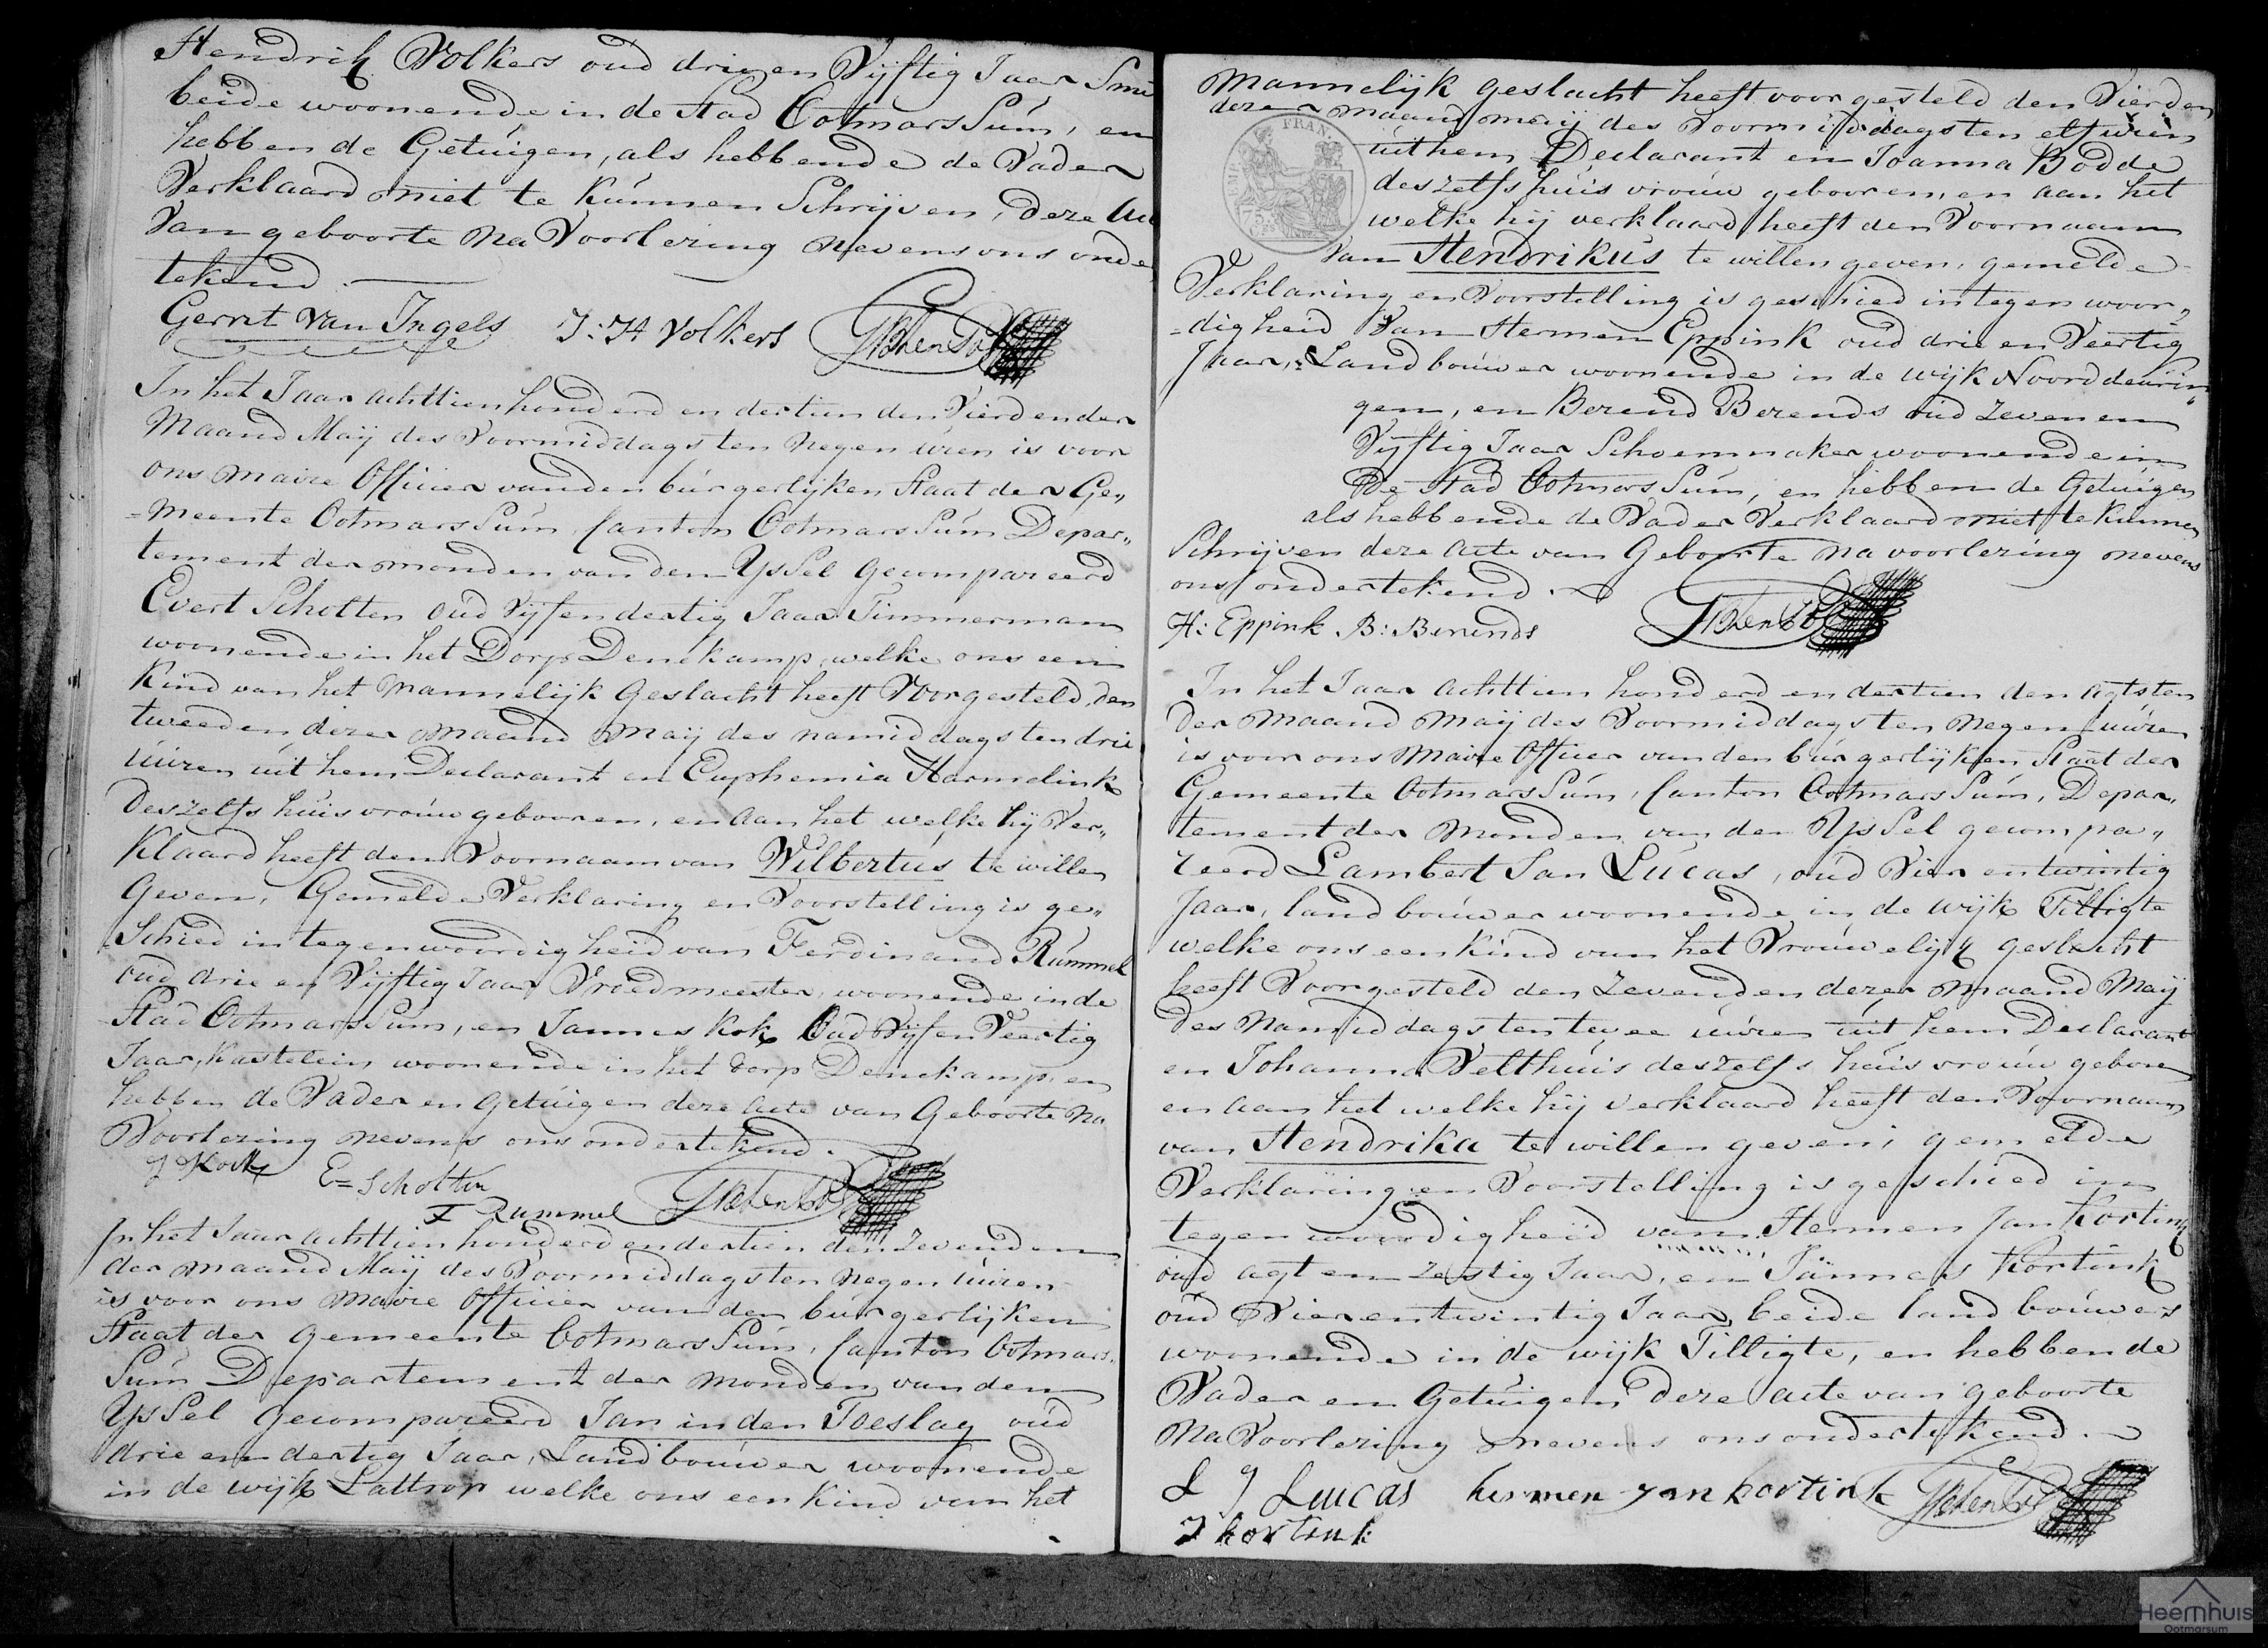 Hendrik Volkers oud drie en Vijftig Jaar Smi
beide woonende in de Stad OotmarsSúm, en
hebben de Getúigen, als hebbende de Vader
Verklaard niet te Kúnnen Schrijven, deze
Van geboorte na Voorlezing nevens ons onde
tekend.
Gerret Van Ingels J: H Volkers
In het Jaar achttien honderd en dertien den Vierden der
Maand Maij des Voormiddags ten negen úren is voor
ons Maire Officier van den búrgerlijken Staat der Ge„
=meente OotmarsSúm, Canton OotmarsSúm Depar„
tement der monden van den YsSel Gecompareerd
Evert Scholten oúd Vijf en dertig Jaar Timmerman
woonende in het Dorp Denekamp, welke ons een
Kind van het Mannelijk Geslacht heeft Voorgesteld, den
tweeden dezer Maand Maij des namiddags ten drie
úúren úit hem Declarant en Euphemia Harmelink
deszelfs húisvroúw gebooren, en aan het welke hij Ver„
Klaard heeft den Voornaam van Wilbertús te willen
Geven, Gemelde Verklaring en Voorstelling is ge„
Schied in tegenwoordigheid van Ferdinand Rúmmel
oúd drie en Vijftig Jaar Vroedmeester, woonende in de
Stad OotmarsSúm, en Jannes Kok Oúd Vijf en Veertig
Jaar, Kastelein woonende in het dorp Denekamp, en
hebben de Vader en Getúigen deze acte van Geboorte na
Voorlezing nevens ons ondertekend.
J Kock E= Scholten
F Rummel
In het Jaar achttien honderd en dertien den Zevenden
der Maand Maij des Voormiddags ten negen úúren
is voor ons Maire Officier van den búrgerlijken
Staat der Gemeente OotmarsSúm, Canton Ootmars„
Súm Departement der Monden van den
YsSel Gecompareerd Jan in den Toeslag oúd
drie en dertig Jaar, Landboúwer woonende
in de wijk Lattrop welke ons een Kind van het
Mannelijk geslacht heeft voorgesteld den Vierden
dezer maand maij des Voormiddags ten elf úúren
FRAN.
úit hem Declarant en Joanna Bodde
deszelfs húis vroúw gebooren, en aan het
welke hij verklaard heeft den Voornaam
75
Van Hendrikús te willen geven, gemelde
Verklaring en Voorstelling is geschied in tegen woor„
=digheid Van Hermen Eppink oúd drie en Veertig
Jaar, Landboúwer woonende in de wijk Noorddeúrin„
gen, en Berend Berends oúd zeven en
Vijftig Jaar Schoenmaker woonende in
De Stad OotmarsSúm, en hebben de Getúigen
als hebbende de Vader Verklaard niet te Kúnnen
Schrijven deze acte van Geboorte na voorlezing nevens
ons ondertekend.
H: Eppink B: Berends
In het Jaar achttien honderd en dertien den agtsten
der Maand Maij des Voormiddags ten negen úúren
is voor ons Maire Officier van den búrgerlijken Staat der
Gemeente OotmarsSúm, Canton OotmarsSúm, Depar„
tement der Monden van den YsSel gecompa„
reerd Lambert Jan Lúcas, oúd Vier en twintig
Jaar, landboúwer woonende in de wijk Tilligte
welke ons een Kind van het Vroúwelijk geslacht
heeft Voorgesteld den Zevenden dezer Maand Maij
des Namiddags ten twee úúren úit hem Declarant
en Johanna Velthúis deszelfs húisvroúw gebore
en aan het welke hij verklaard heeft den Voornaam
van Hendrika te willen geven, gemelde
Verklaring en Voorstelling is geschied in
tegenwoordigheid van Hermen Jan Kortink
oúd agt en zestig Jaar, en Jannes Kortink
oúd Vier en twintig Jaar, beide landboúwers
woonende in de wijk Tilligte, en hebben de
Vader en Getúigen deze acte van geboorte
Na Voorlezing nevens ons ondertekend.
L J Lucas hermen jan kortink
J kortink
Heemhuis
Ootmarsum